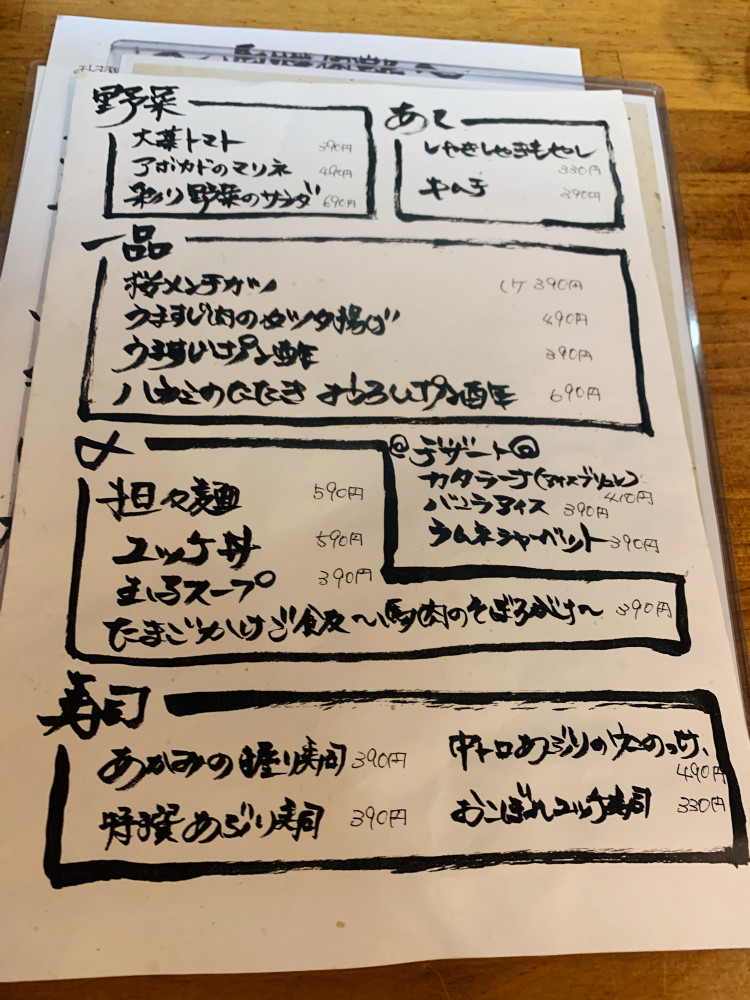 野菜
大葉トマト 390円
アボカドのマリネ 490円
彩り野菜のサラダ 690円
あて
しゃきしゃきもやし
330円
キムチ 390円
一品
桜メンチカツ 1ケ 390円
うますじ肉のタツタ揚げ 490円
うますじポン酢 390円
ハラミのたたき おろしポン酢 690円
〆
担々麺 590円
ユッケ丼 590円
まるスープ 390円
たまごかけご飯〜馬肉のそぼろがけ〜 390円
デザート
カタラーナ(アイスブリュレ)
410円
バニラアイス 390円
ラムネシャーベット 390円
寿司
あかみの握り寿司 390円
特撰あぶり寿司 390円
中トロあぶりの
490円
おこぼれユッケ寿司 330円